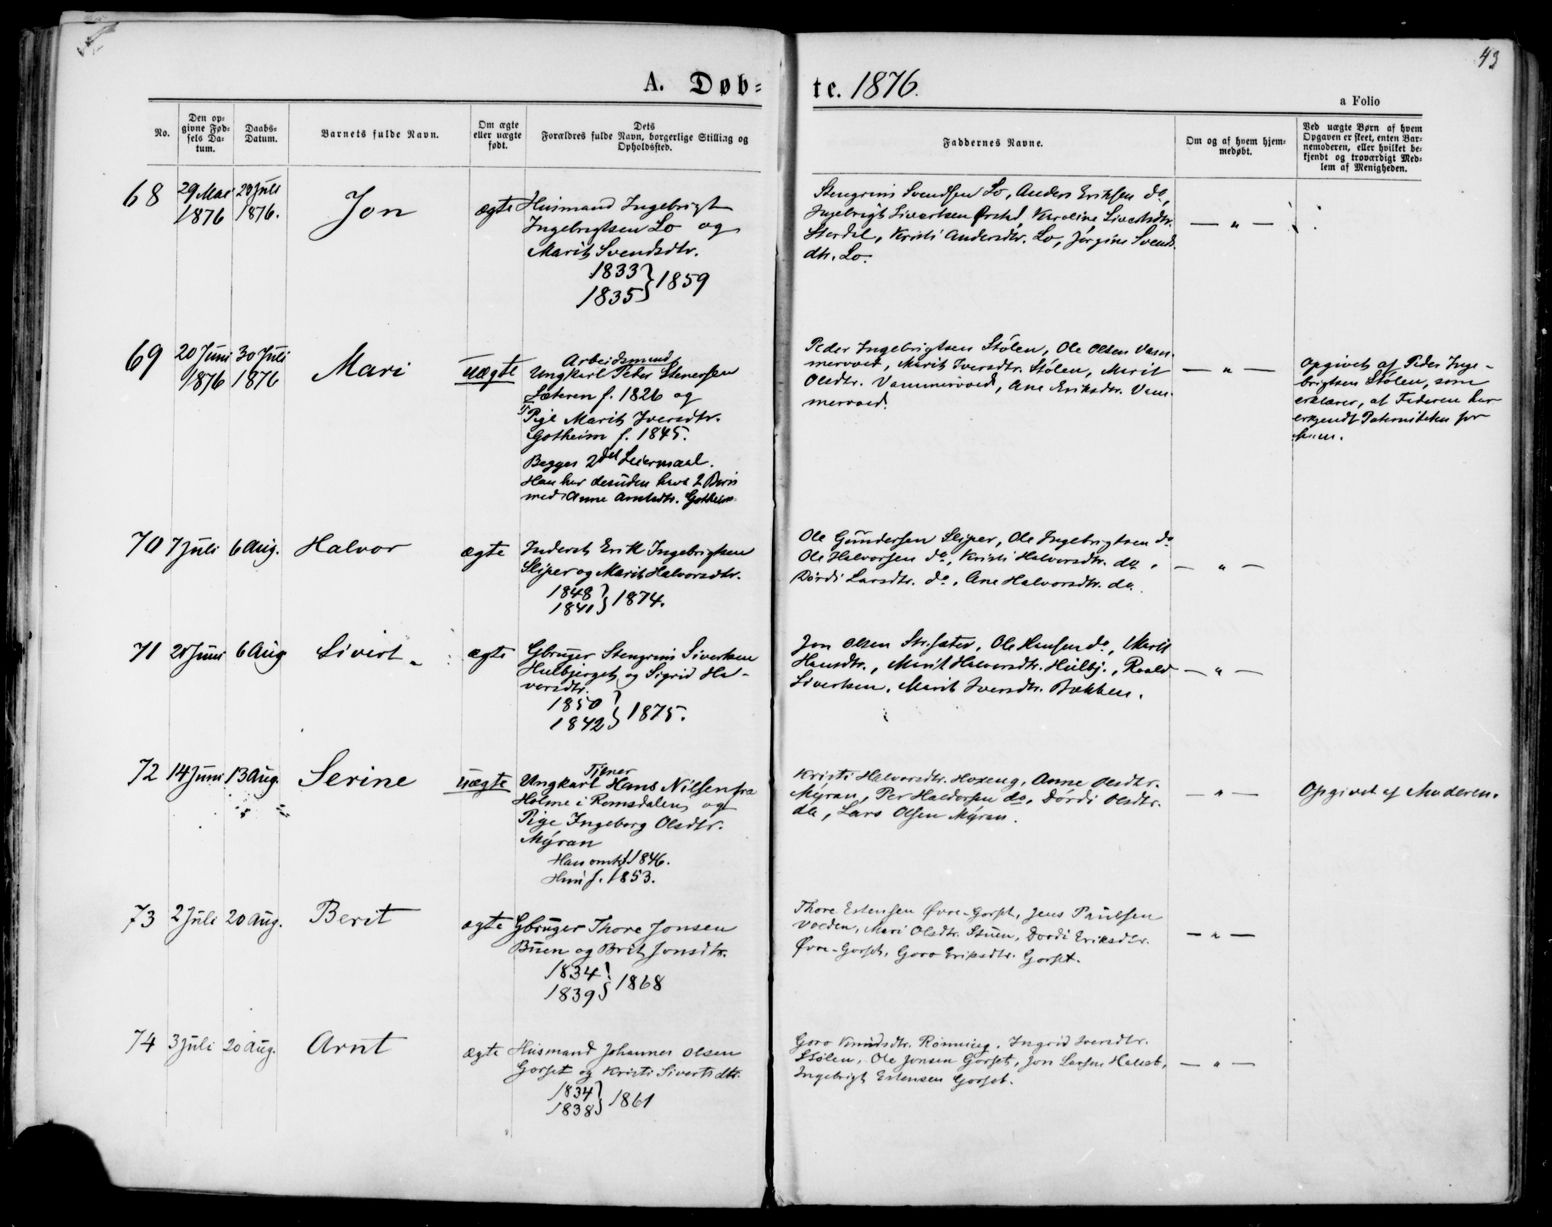 43
A. Døb= te. 1876.
a Folio
No.
Den op-
givne Fød-
sels Da-
tum.
Daabs-
Datum.
Barnets fulde Navn.
Om ægte
eller uægte
født.
Dets
Forældres fulde Navn, borgerlige Stilling og
Opholdssted.
Faddernes Navne.
Om og af hvem hjem-
medøbt.
Ved uægte Børn af hvem
Opgaven er skeet, enten Bar-
nemoderen, eller hvilket be-
kjendt og troværdigt Med-
lem af Menigheden.
68
29 Mai
1876
Juli
1876.
Jon
ægte
Husmand Ingebrigt
Ingebrigtsen Lo og
Marit Svendsdtr.
1833
1835 } 1859
Stengrim Svendsen Lo, Anders Eriksen do,
Ingebrigt Sivertsen Ørstad, Karoline Sivertsdtr.
Stordal, Kristi Andersdtr. Lo, Jørgine Svends
dtr. Lo.
— " —
69
20 Juni
1876
30 Juli
1876
Mari
uægte
Arbeidsmand
Ungkarl Peder Stenersen
Sæteren f. 1826 og
Pige Marit Iversdtr.
Gotheim f. 1845.
Begges 2det Leiermaal.
Han har desuden havt 2 Børn
med Anne Arntsdtr. Gotheim
Peder Ingebrigtsen Stølen, Ole Olsen Vam-
mervold, Marit Iversdtr. Stølen, Marit
Olsdtr. Vammervold, Ane Eriksdtr. Vam-
mervold.
— " —
Opgivet af Peder Inge-
brigtsen Stølen, som
erklærer, at Faderen har
erkjendt Paterniteten for
ham.
70
7 Juli
6 Aug.
Halvor
ægte
Inderst Erik Ingebrigtsen
Sliper og Marit Halvorsdtr.
1848
1841 } 1874.
Ole Gundersen Sliper, Ole Ingebrigtsen do
Ole Halvorsen do, Kristi Halvorsdtr. do,
Dordi Larsdtr. do, Ane Halvorsdtr. do.
— " —
71
Juni
6 Aug
Sivert
ægte
Gbruger Stengrim Sivertsen
Hulbjørget og Sigrid Ha-
vorsdtr.
1850
1842 } 1875.
Jon Olsen Ole Hansen do, Marit
Hansdtr., Marit Halvorsdtr. Hulbj.,
Sivertsen, Marit Iversdtr. Bakken.
— " —
72
14 Juni
13 Aug.
Serine
uægte
Tjener
Ungkarl Hans Nilsen fra
Holme i Romsdalen og
Pige Ingeborg Olsdtr.
Myran
Han omtr. 1846.
Hun f. 1853.
Kristi Halvorsdtr. Hoxeng, Anne Olsdtr.
Myran, Per Haldorsen do, Dordi Olsdtr.
do, Lars Olsen Myran.
— " —
Opgivet af Moderen.
73
2 Juli
20 Aug.
Berit
ægte
Gbruger Thore Jonsen
Buen og Brit Jonsdtr.
1834
1839 } 1868
Thore Estensen Øvre-Gorset, Jens Paulsen
Volden, Mari Olsdtr. Stuen, Dordi Eriksdtr.
Øvre-Gorset, Goro Eriksdtr. Gorset.
— " —
74
3 Juli
20 Aug.
Arnt
ægte
Husmand Johannes Olsen
Gorset og Kristi Sivertsdtr.
1834
1838 } 1861
Goro Knudsdtr. Rønning, Ingrid Iversdtr.
Stølen, Ole Jonsen Gorset, Jon Larsen
Ingebrigt Estensen Gorset.
— " —